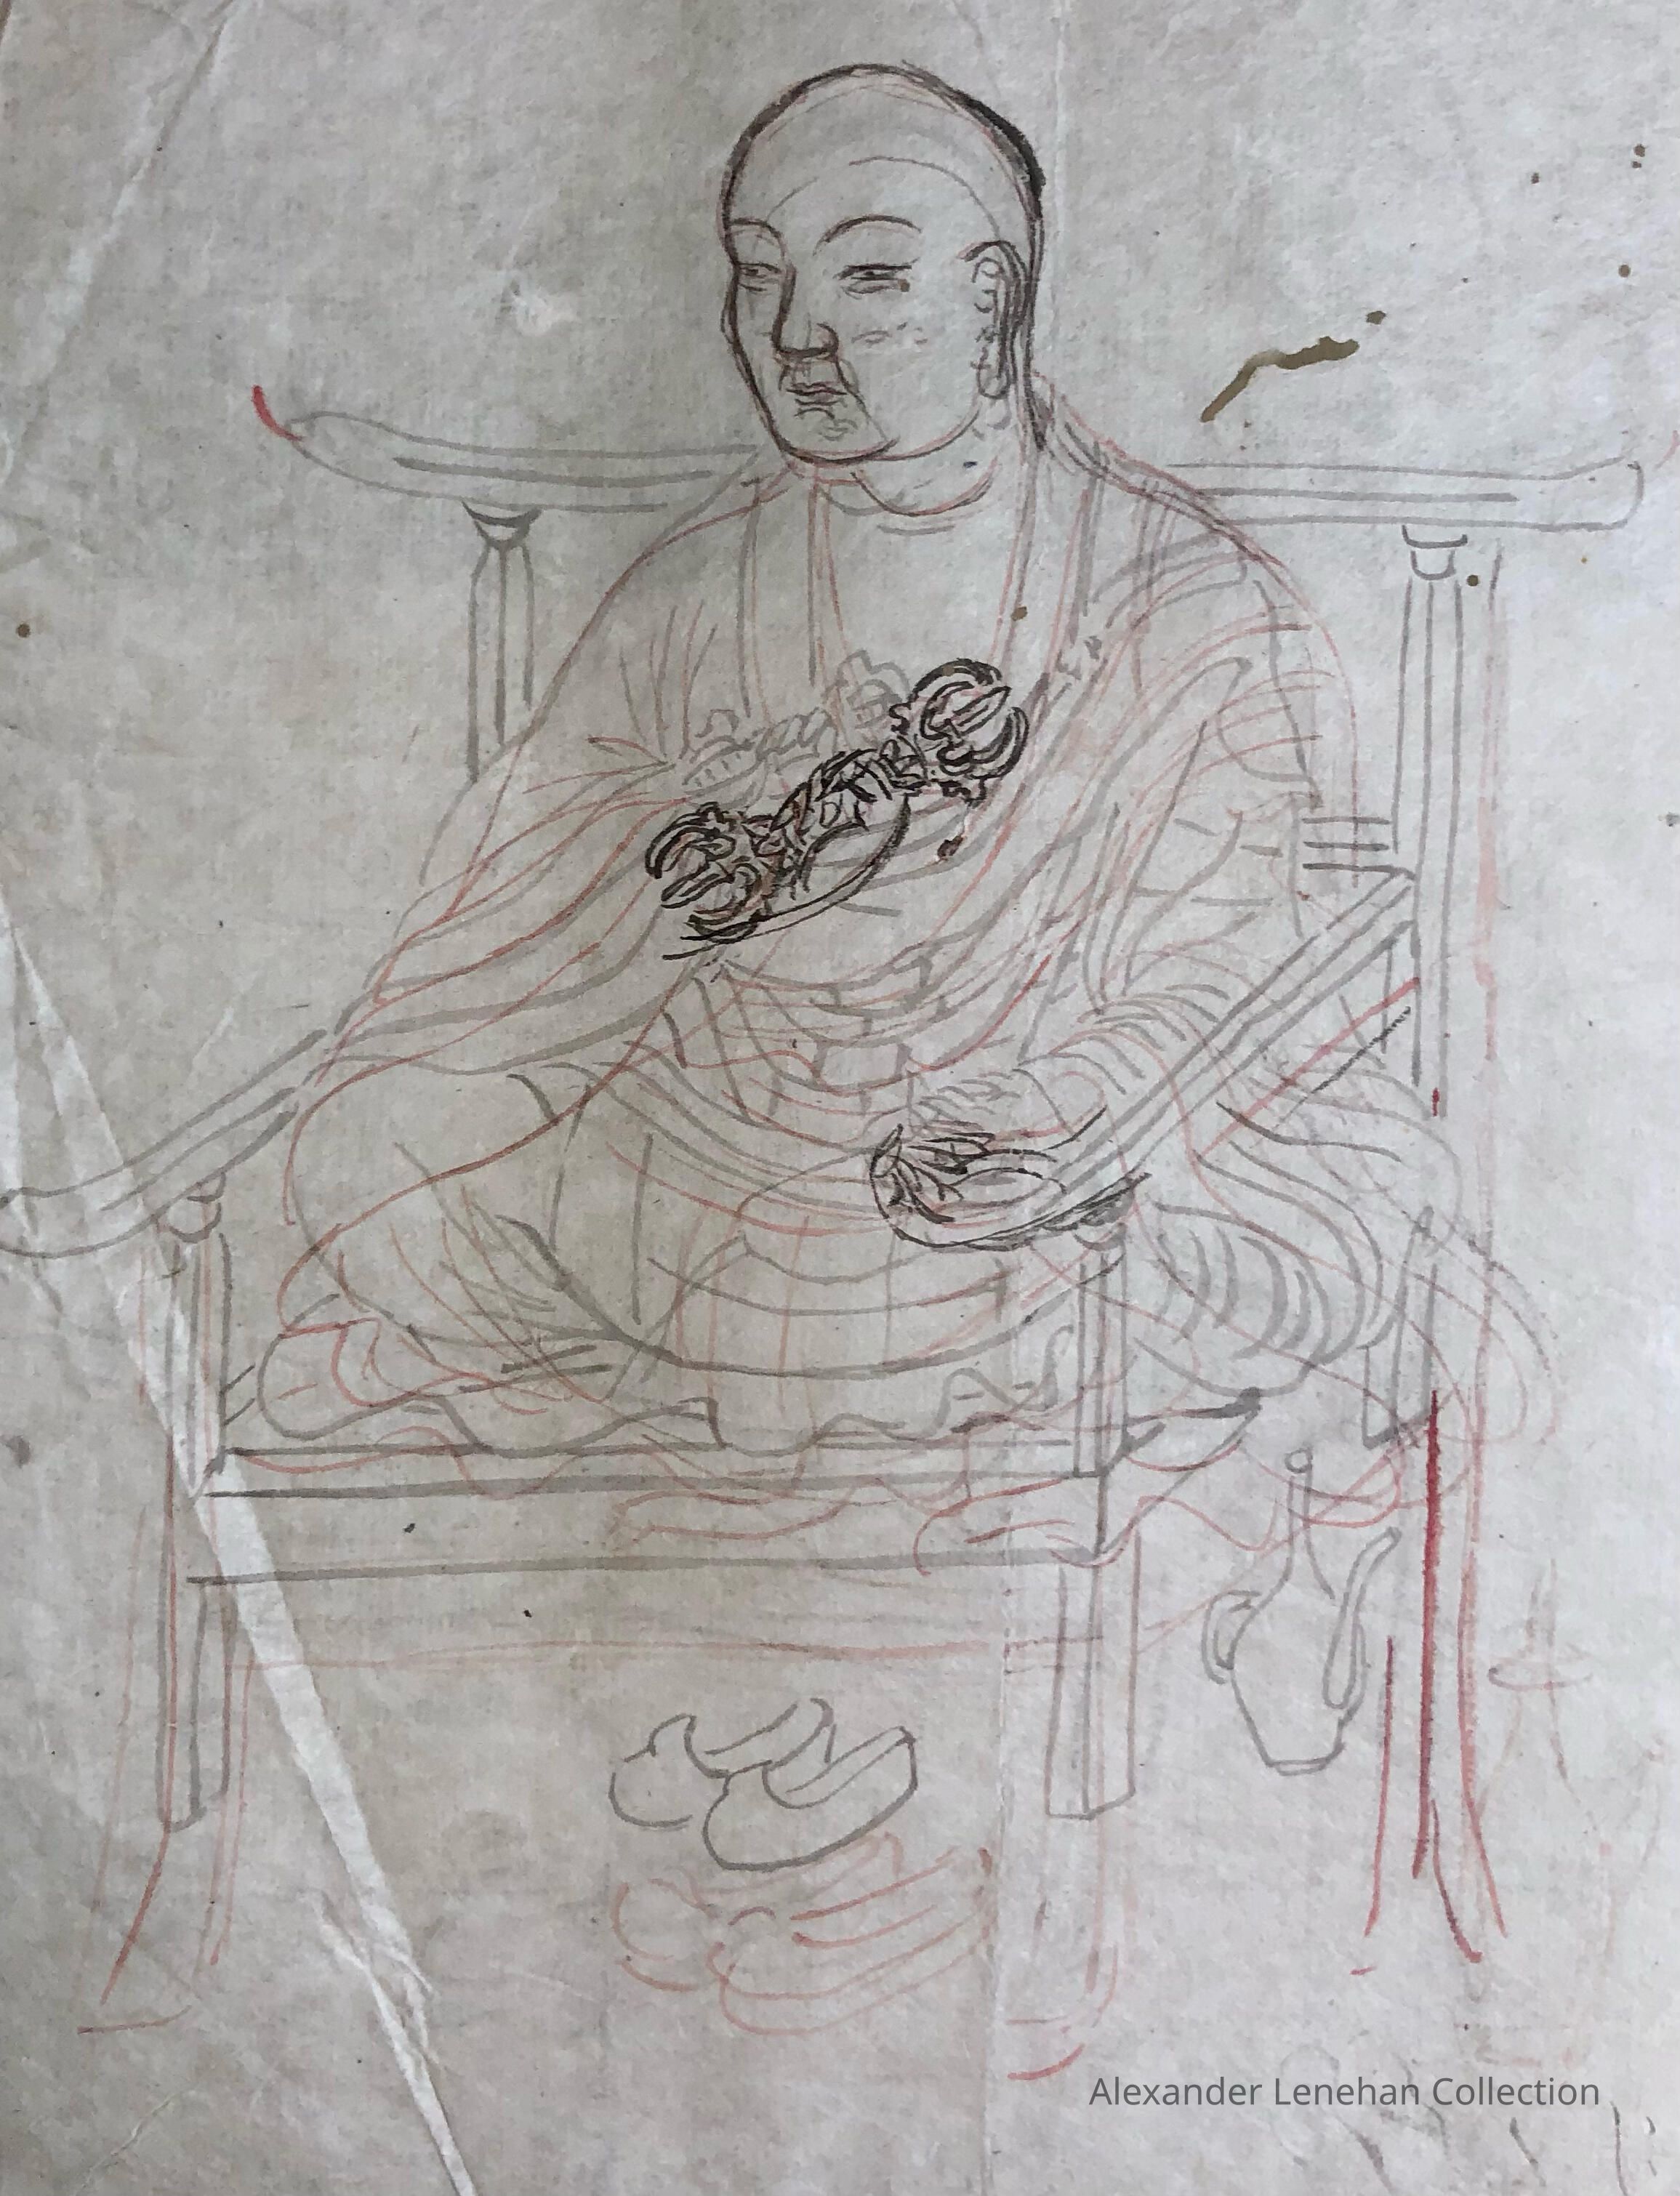 Alexander Lenehan Collection